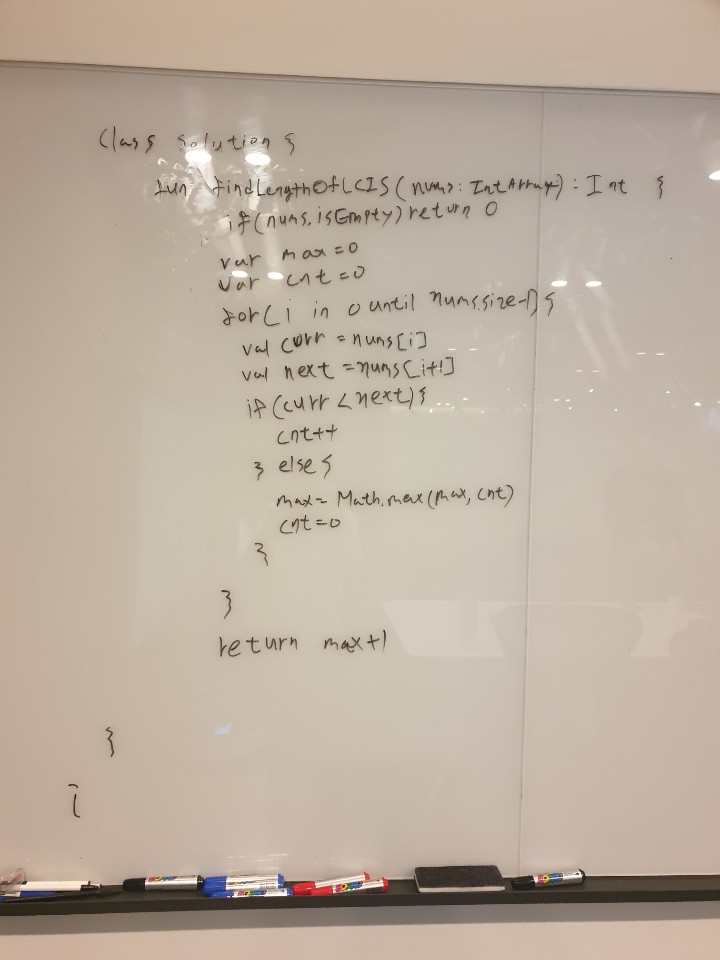 class Solution {
fun findLengthOfLCIS(nums: IntArray): Int {
if(nums.isEmpty) return 0
var max=0
var cnt=0
for(i in 0 until nums.size-1){
val curr = nums[i]
val next = nums[i+1]
if(curr < next){
cnt++
} else {
max= Math.max(max, cnt)
cnt=0
}
}
return max+1
}